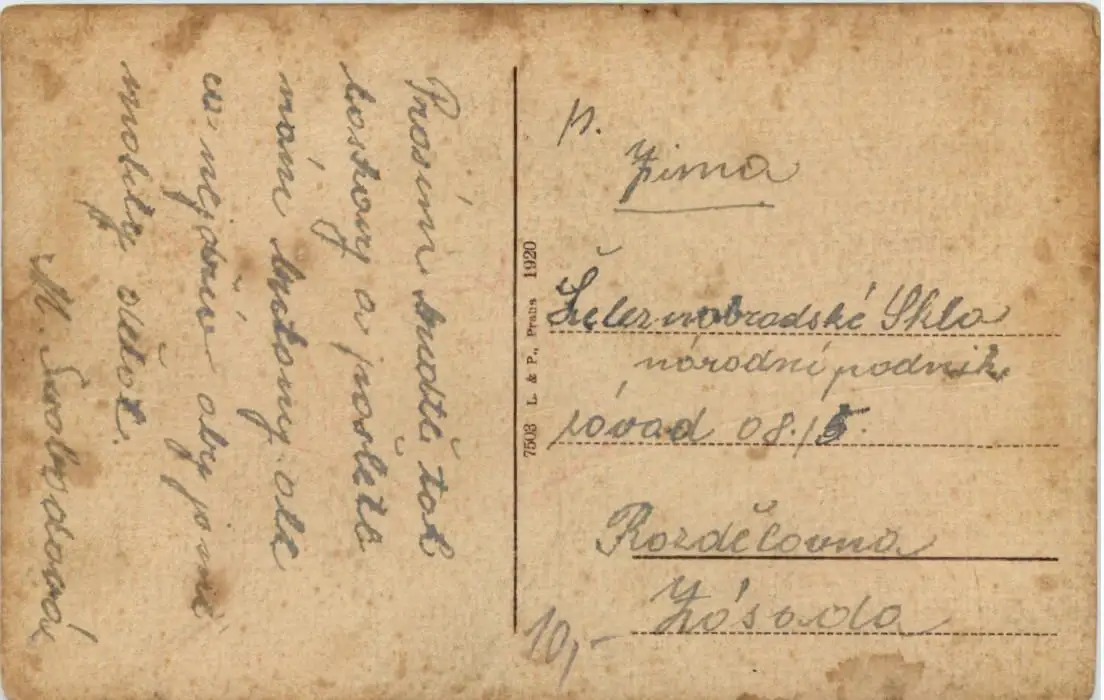 Prosím budte tak
laskavý a pošlete
nám butony ale
co nejdřív aby jsme
mohly dělat.
M. Svobodová
7503 L. & P., Praha 1920
p.
Zima
Železnobrodské Sklo
národní podnik
závad 08.15.
Rozdělovna
Zásada
10,-